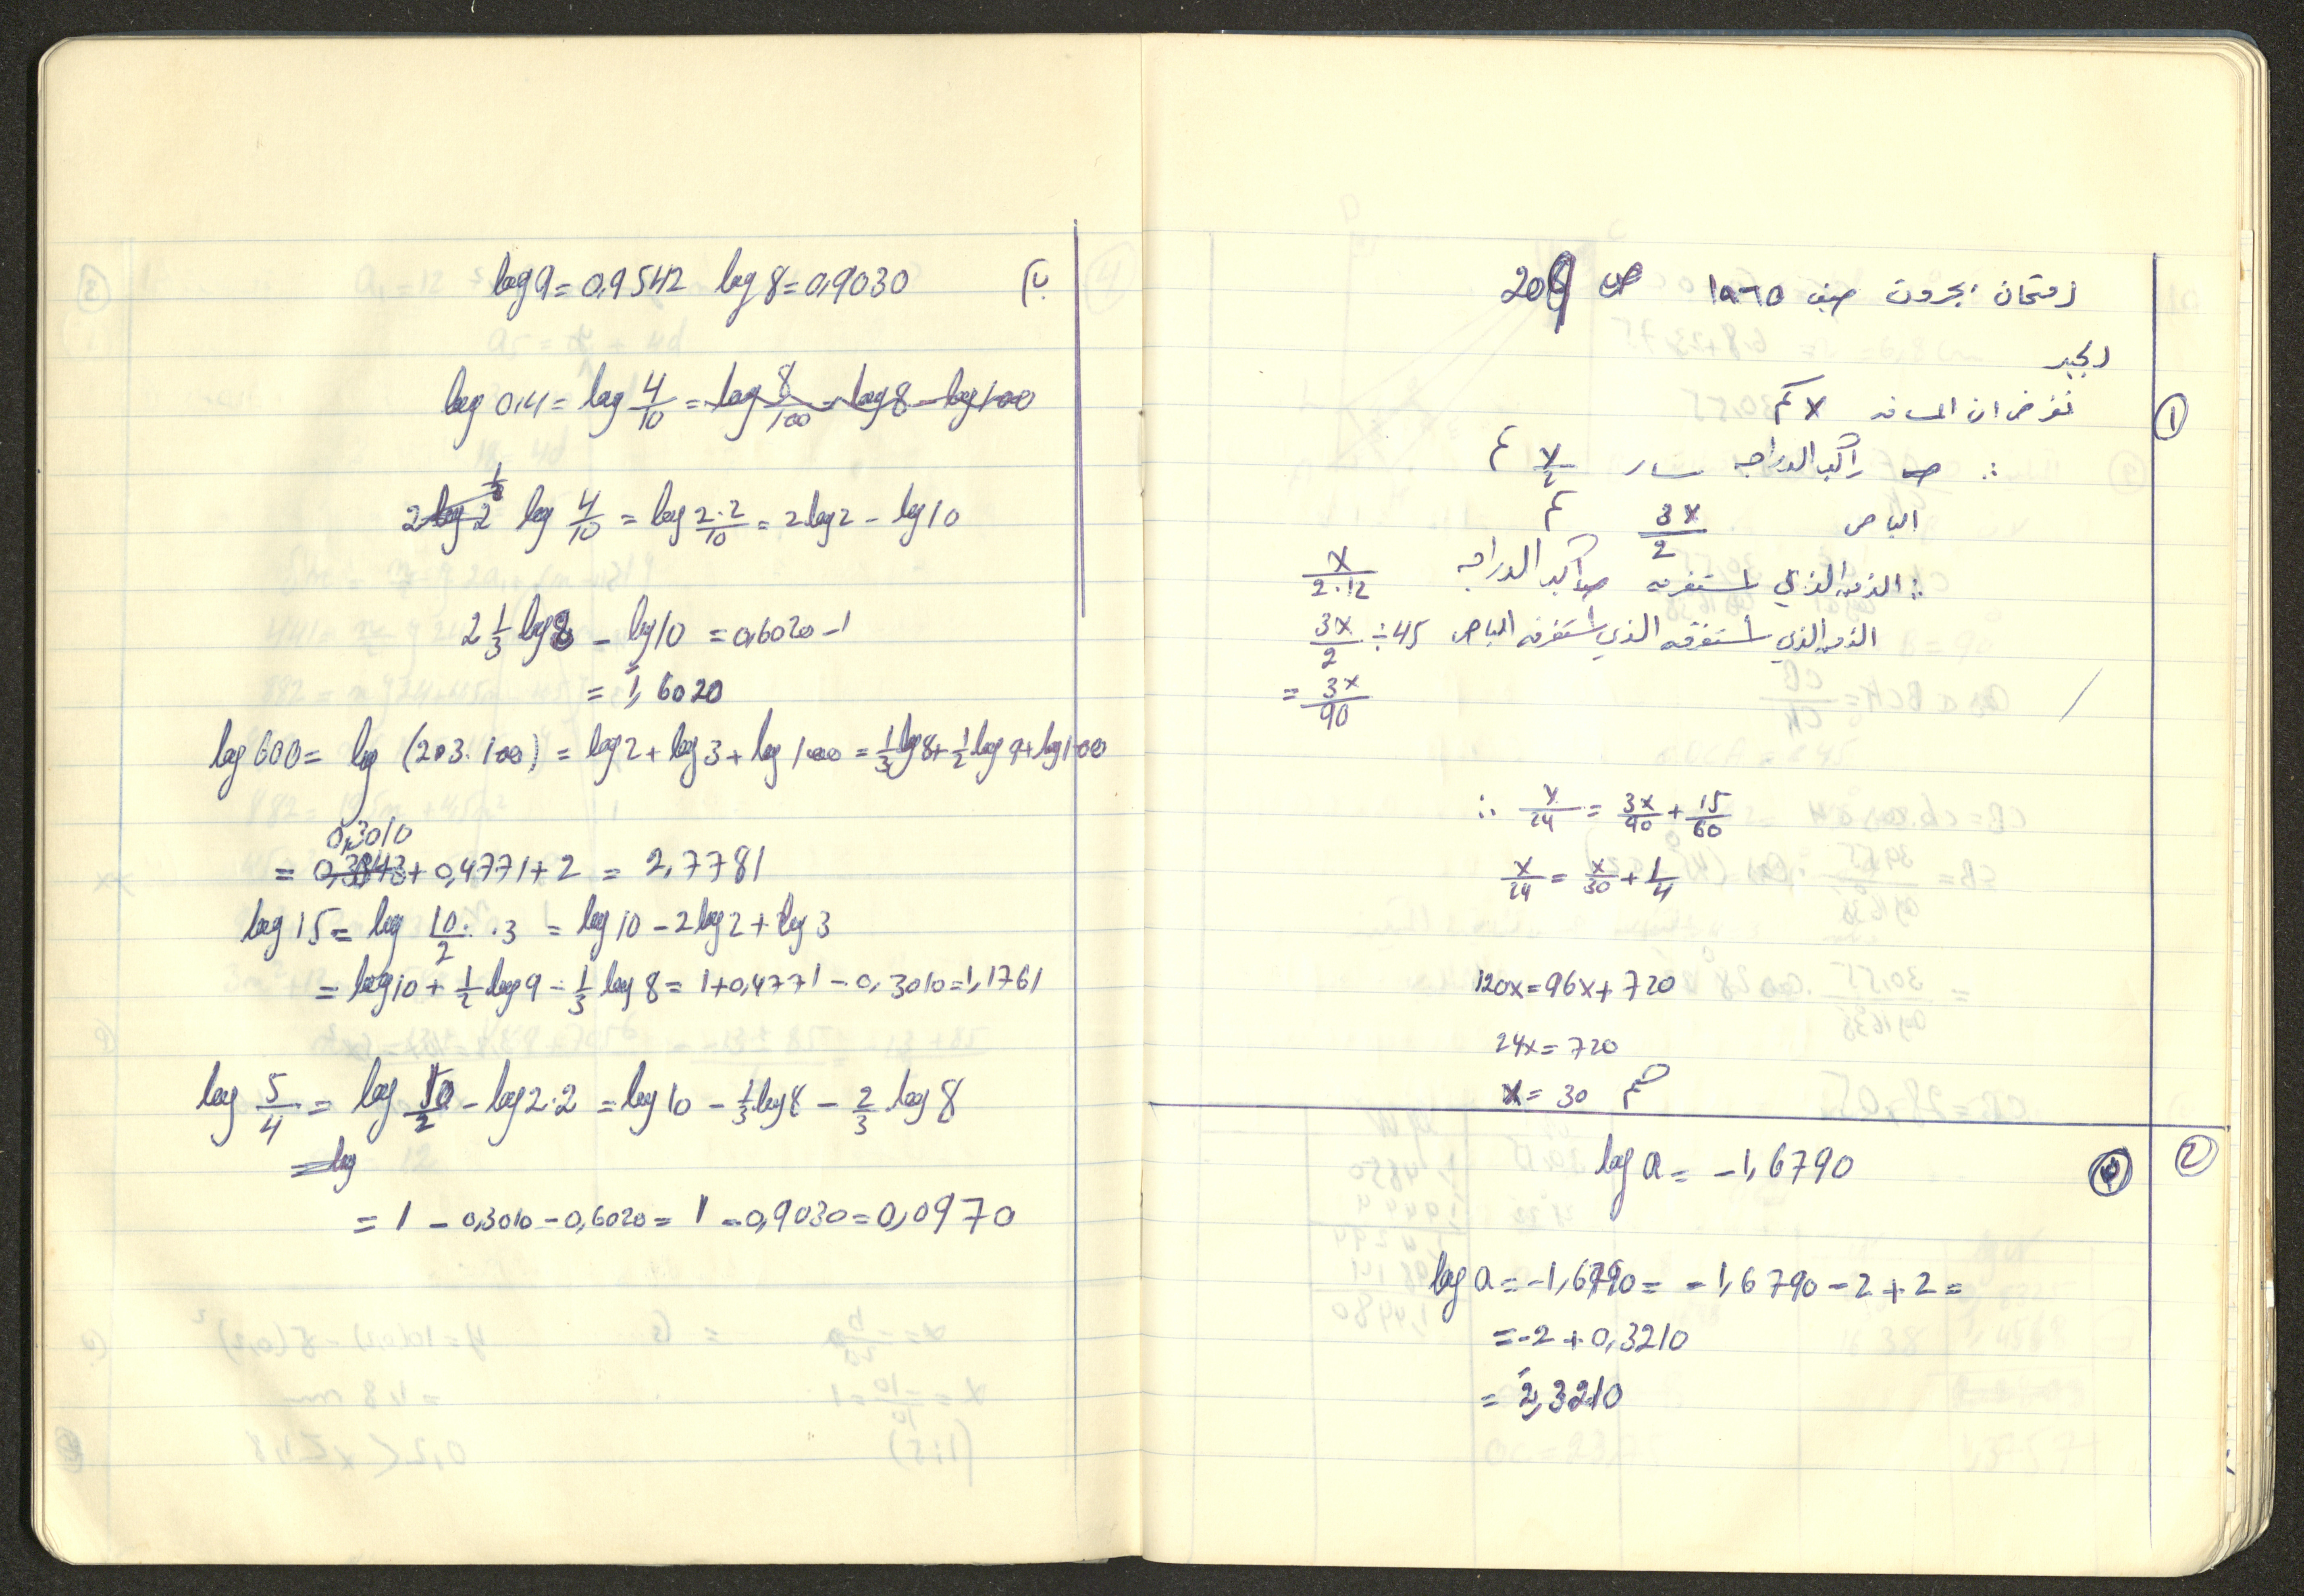 امتحان بجروت صيف ١٩٦٥ ص 209
الجبر
① نفرض ان المسافه x كم
∴ راكب الدراجه سار x/2 كم
الباص 3x/2 كم
∴ الزمن الذي استغرقه راكب الدراجه x/2·12
الزمن الذي استغرقه الباص 3x/2 ÷ 45
= 3x/90
∴ x/24 = 3x/90 + 15/60
x/24 = x/30 + 1/4
120x = 96x + 720
24x = 720
x = 30 كم
② log a = -1,6790
log a = -1,6790 = -1,6790 - 2 + 2 =
= -2 + 0,3210
= 2̄,3210
ب) log 9 = 0,9542 log 8 = 0,9030
log 0,4 = log 4/10 = log 8/100 = log 8 - log 100
2 log 2 log 4/10 = log 2·2/10 = 2 log 2 - log 10
2 1/3 log 8 - log 10 = 0,6020 - 1
= 1̄,6020
log 600 = log (2·3·100) = log 2 + log 3 + log 100 = 1/3 log 8 + 1/2 log 9 + log 100
0,3010
= + 0,4771 + 2 = 2,7781
log 15 = log 10/2 · 3 = log 10 - 2 log 2 + log 3
= log 10 + 1/2 log 9 - 1/3 log 8 = 1 + 0,4771 - 0,3010 = 1,1761
log 5/4 = log 10/2 - log 2·2 = log 10 - 1/3 log 8 - 2/3 log 8
= log
= 1 - 0,3010 - 0,6020 = 1 - 0,9030 = 0,0970